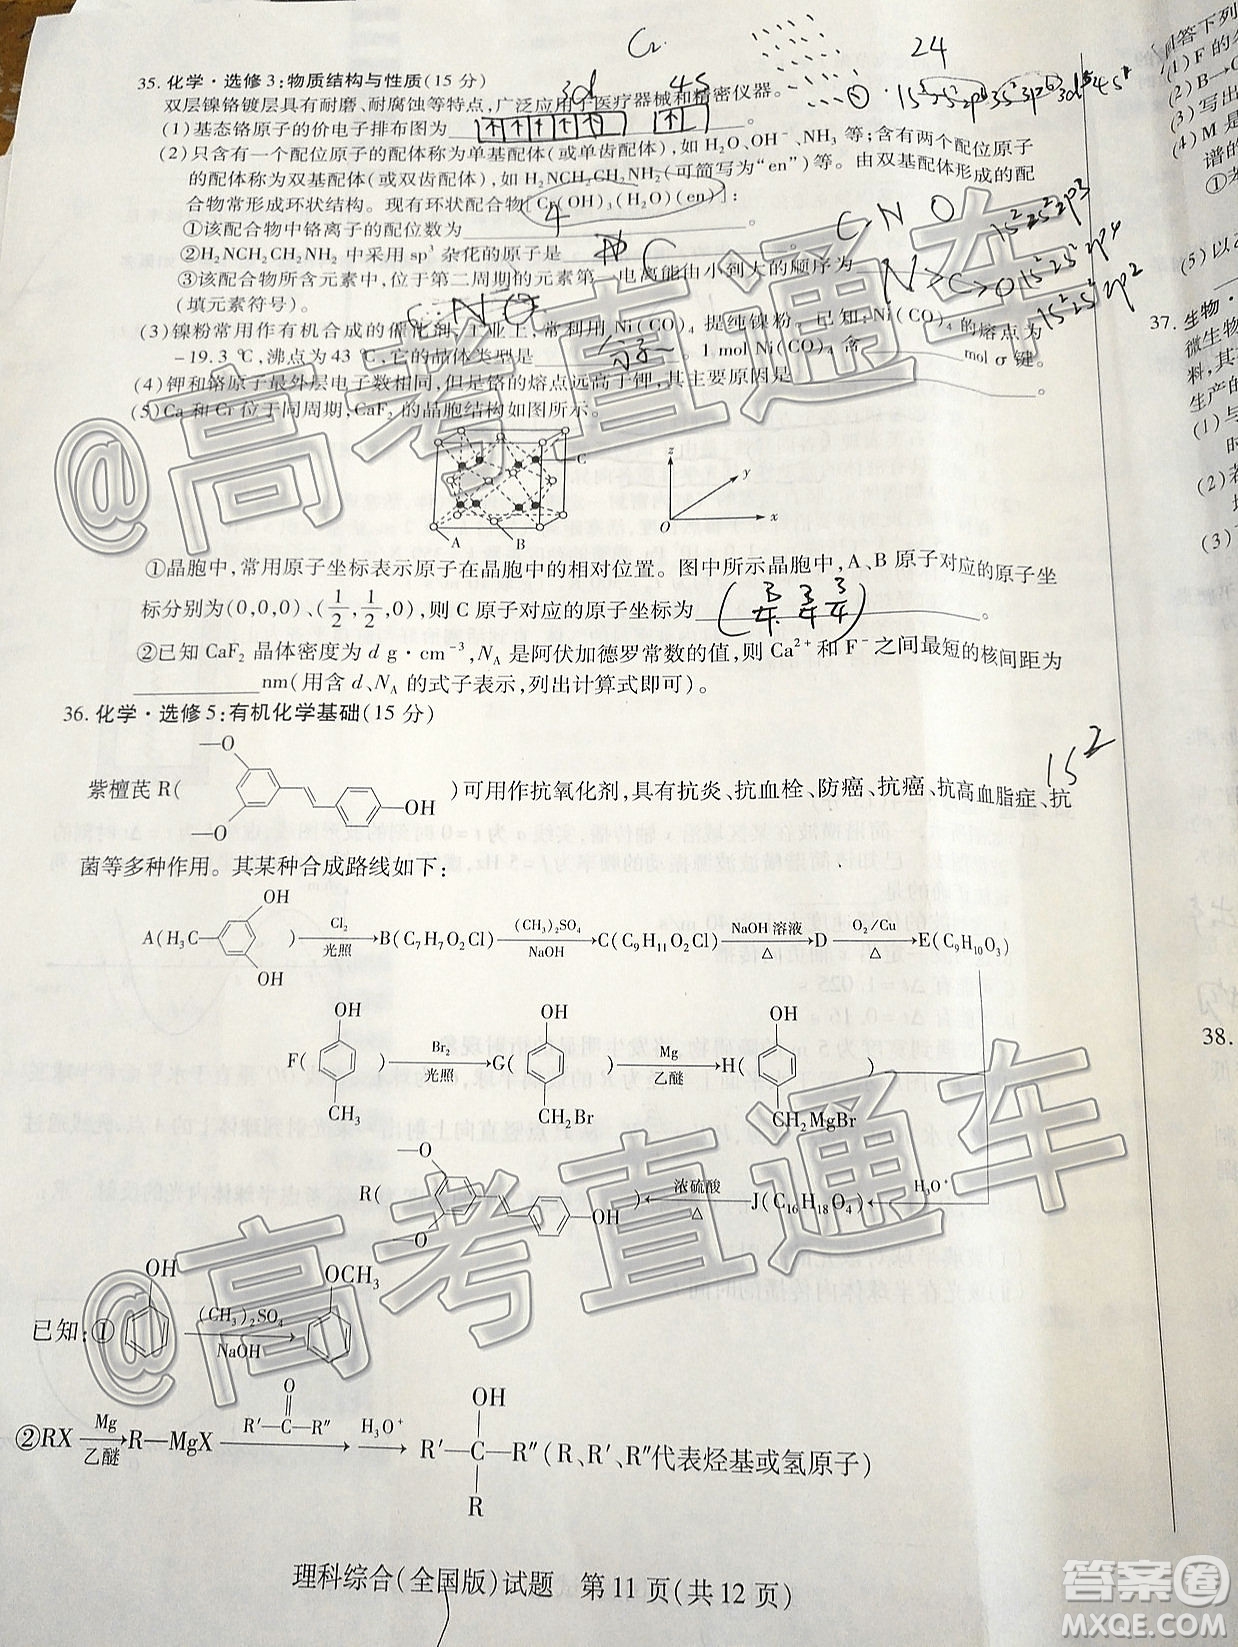 Cr
24
35. 化学·选修3:物质结构与性质(15分)
3d 4s
双层镍铬镀层具有耐磨、耐腐蚀等特点,广泛应用于医疗器械和精密仪器。
1s²2s²2p⁶3s²3p⁶3d⁵4s¹
(1)基态铬原子的价电子排布图为 ↑ ↑ ↑ ↑ ↑ ↑ 。
(2)只含有一个配位原子的配体称为单基配体(或单齿配体),如H₂O、OH⁻、NH₃等;含有两个配位原子
的配体称为双基配体(或双齿配体),如H₂NCH₂CH₂NH₂(可简写为“en”)等。由双基配体形成的配
合物常形成环状结构。现有环状配合物[Cr(OH)₃(H₂O)(en)]:
①该配合物中铬离子的配位数为 4 。
C N O
1s²2s²2p³
②H₂NCH₂CH₂NH₂中采用sp³杂化的原子是 C
1s²2s²2p⁴
③该配合物所含元素中,位于第二周期的元素第一电离能由小到大的顺序为
N>C>O
1s²2s²2p²
(填元素符号)。
C N O
(3)镍粉常用作有机合成的催化剂,工业上,常利用Ni(CO)₄提纯镍粉。已知:Ni(CO)₄的熔点为
-19.3℃,沸点为43℃,它的晶体类型是 分子 。1 mol Ni(CO)₄含 mol σ键。
(4)钾和铬原子最外层电子数相同,但是铬的熔点远高于钾,其主要原因是 。
(5)Ca和Cr位于同周期,CaF₂的晶胞结构如图所示。
A B C
z y O x
①晶胞中,常用原子坐标表示原子在晶胞中的相对位置。图中所示晶胞中,A、B原子对应的原子坐
标分别为(0,0,0)、(1/2,1/2,0),则C原子对应的原子坐标为 (3/4 3/4 3/4) 。
②已知CaF₂晶体密度为d g·cm⁻³,N_A是阿伏加德罗常数的值,则Ca²⁺和F⁻之间最短的核间距为
nm(用含d、N_A的式子表示,列出计算式即可)。
36. 化学·选修5:有机化学基础(15分)
1s²
紫檀芪R( —O —O OH )可用作抗氧化剂,具有抗炎、抗血栓、防癌、抗癌、抗高血脂症、抗
菌等多种作用。其某种合成路线如下:
A(H₃C— OH OH ) Cl₂ 光照 B(C₇H₇O₂Cl) (CH₃)₂SO₄ NaOH C(C₉H₁₁O₂Cl) NaOH溶液 △ D O₂/Cu △ E(C₉H₁₀O₃)
F( OH CH₃ ) Br₂ 光照 G( OH CH₂Br ) Mg 乙醚 H( OH CH₂MgBr )
R( —O —O —OH ) 浓硫酸 △ J(C₁₆H₁₈O₄) H₃O⁺
已知:① OH (CH₃)₂SO₄ NaOH OCH₃
②RX Mg 乙醚 R—MgX R′—C—R″ O H₃O⁺ R′—C—R″ OH R (R、R′、R″代表烃基或氢原子)
理科综合(全国版)试题 第11页(共12页)
回答下列
(1)F的
(2)B→
(3)写出
(4)M是
谱的
(5)以
37. 生物·
微生物
料,其
生产的
(1)与
时
(2)若
(3)
38.
@高考直通车
@高考直通车
答案圈
MXQE.COM